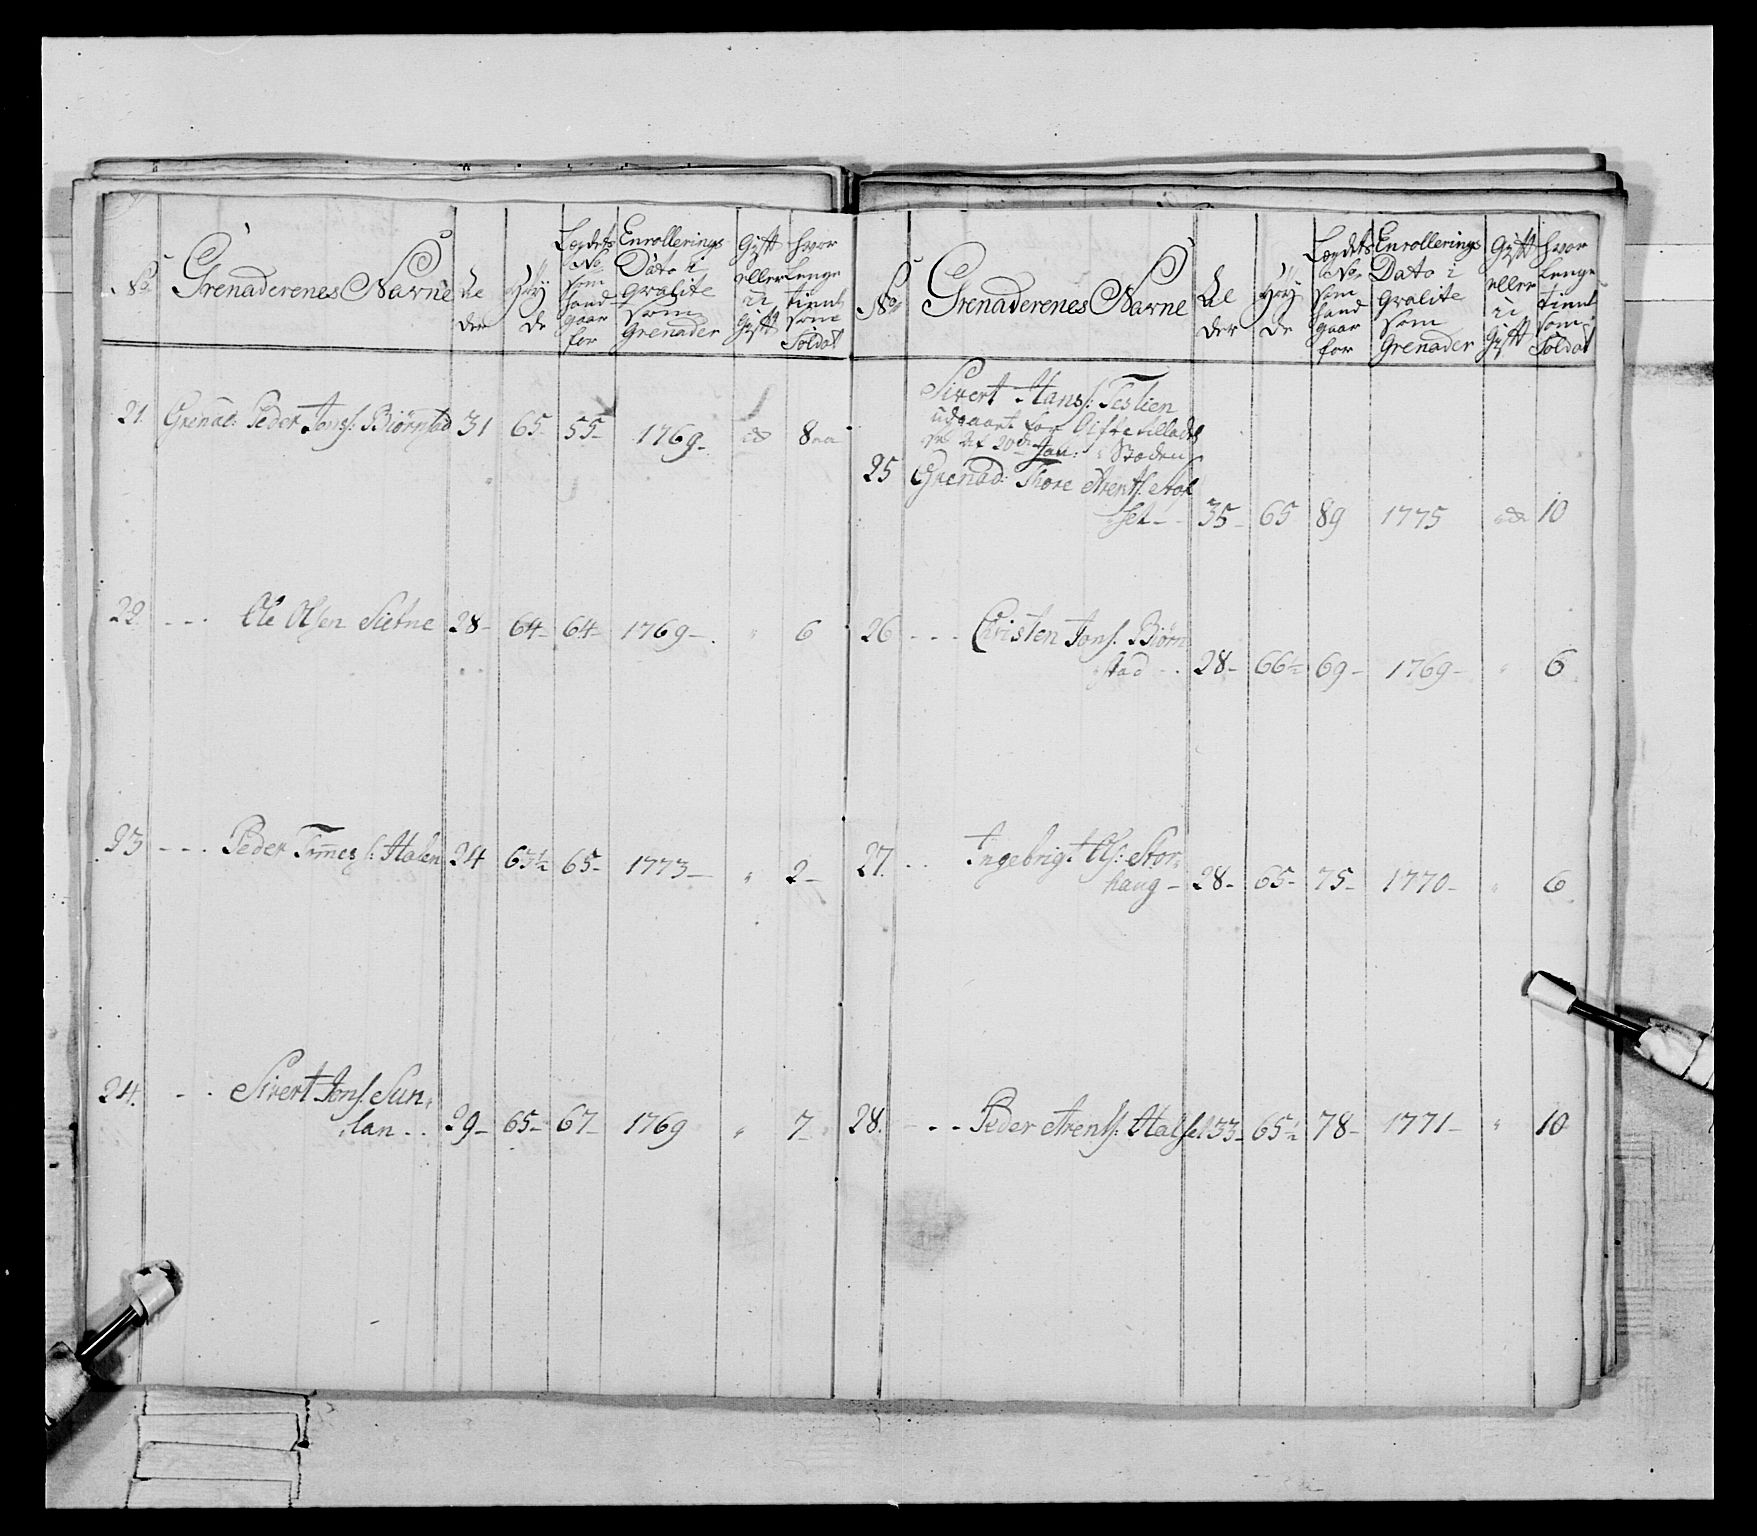 No Grenaderenes Navne Al der Höy de Lægdets No som hand gaar for Enrollerings Dato i Qvalite som Grenader Gift eller u Gift hvor lenge tient som Soldat
21. Grenad: Peder Jons: Biørstad 31 65 55 1769 8
22. Ole Olsen Sietne 28 64 64 1769 " 6
23 Peder Tommes: Halen 24 65½ 65 1773 " 2
24. Sivert Jons. Sun,
lan 29 65 67 1769 " 7
No Grenaderenes Navne Al der Höy de Lægdets No som hand gaar for Enrollerings Dato i Qvalite som Grenader Gift eller u Gift hvor lenge tient som Soldat
Sivert Hans: Teslien
udgaart for
20de Jan:
25 Grenad: Thore Arents: Aol
set 35 65 89 1775 10
26 Christen Jons. Biørn
stad 28 66½ 69 1769 " 6
27. Ingebrigt Ols: Stor,
haug 28 65 75 1770 " 6
28. Peder Arents: Halset 33 65½ 78 1771 " 10